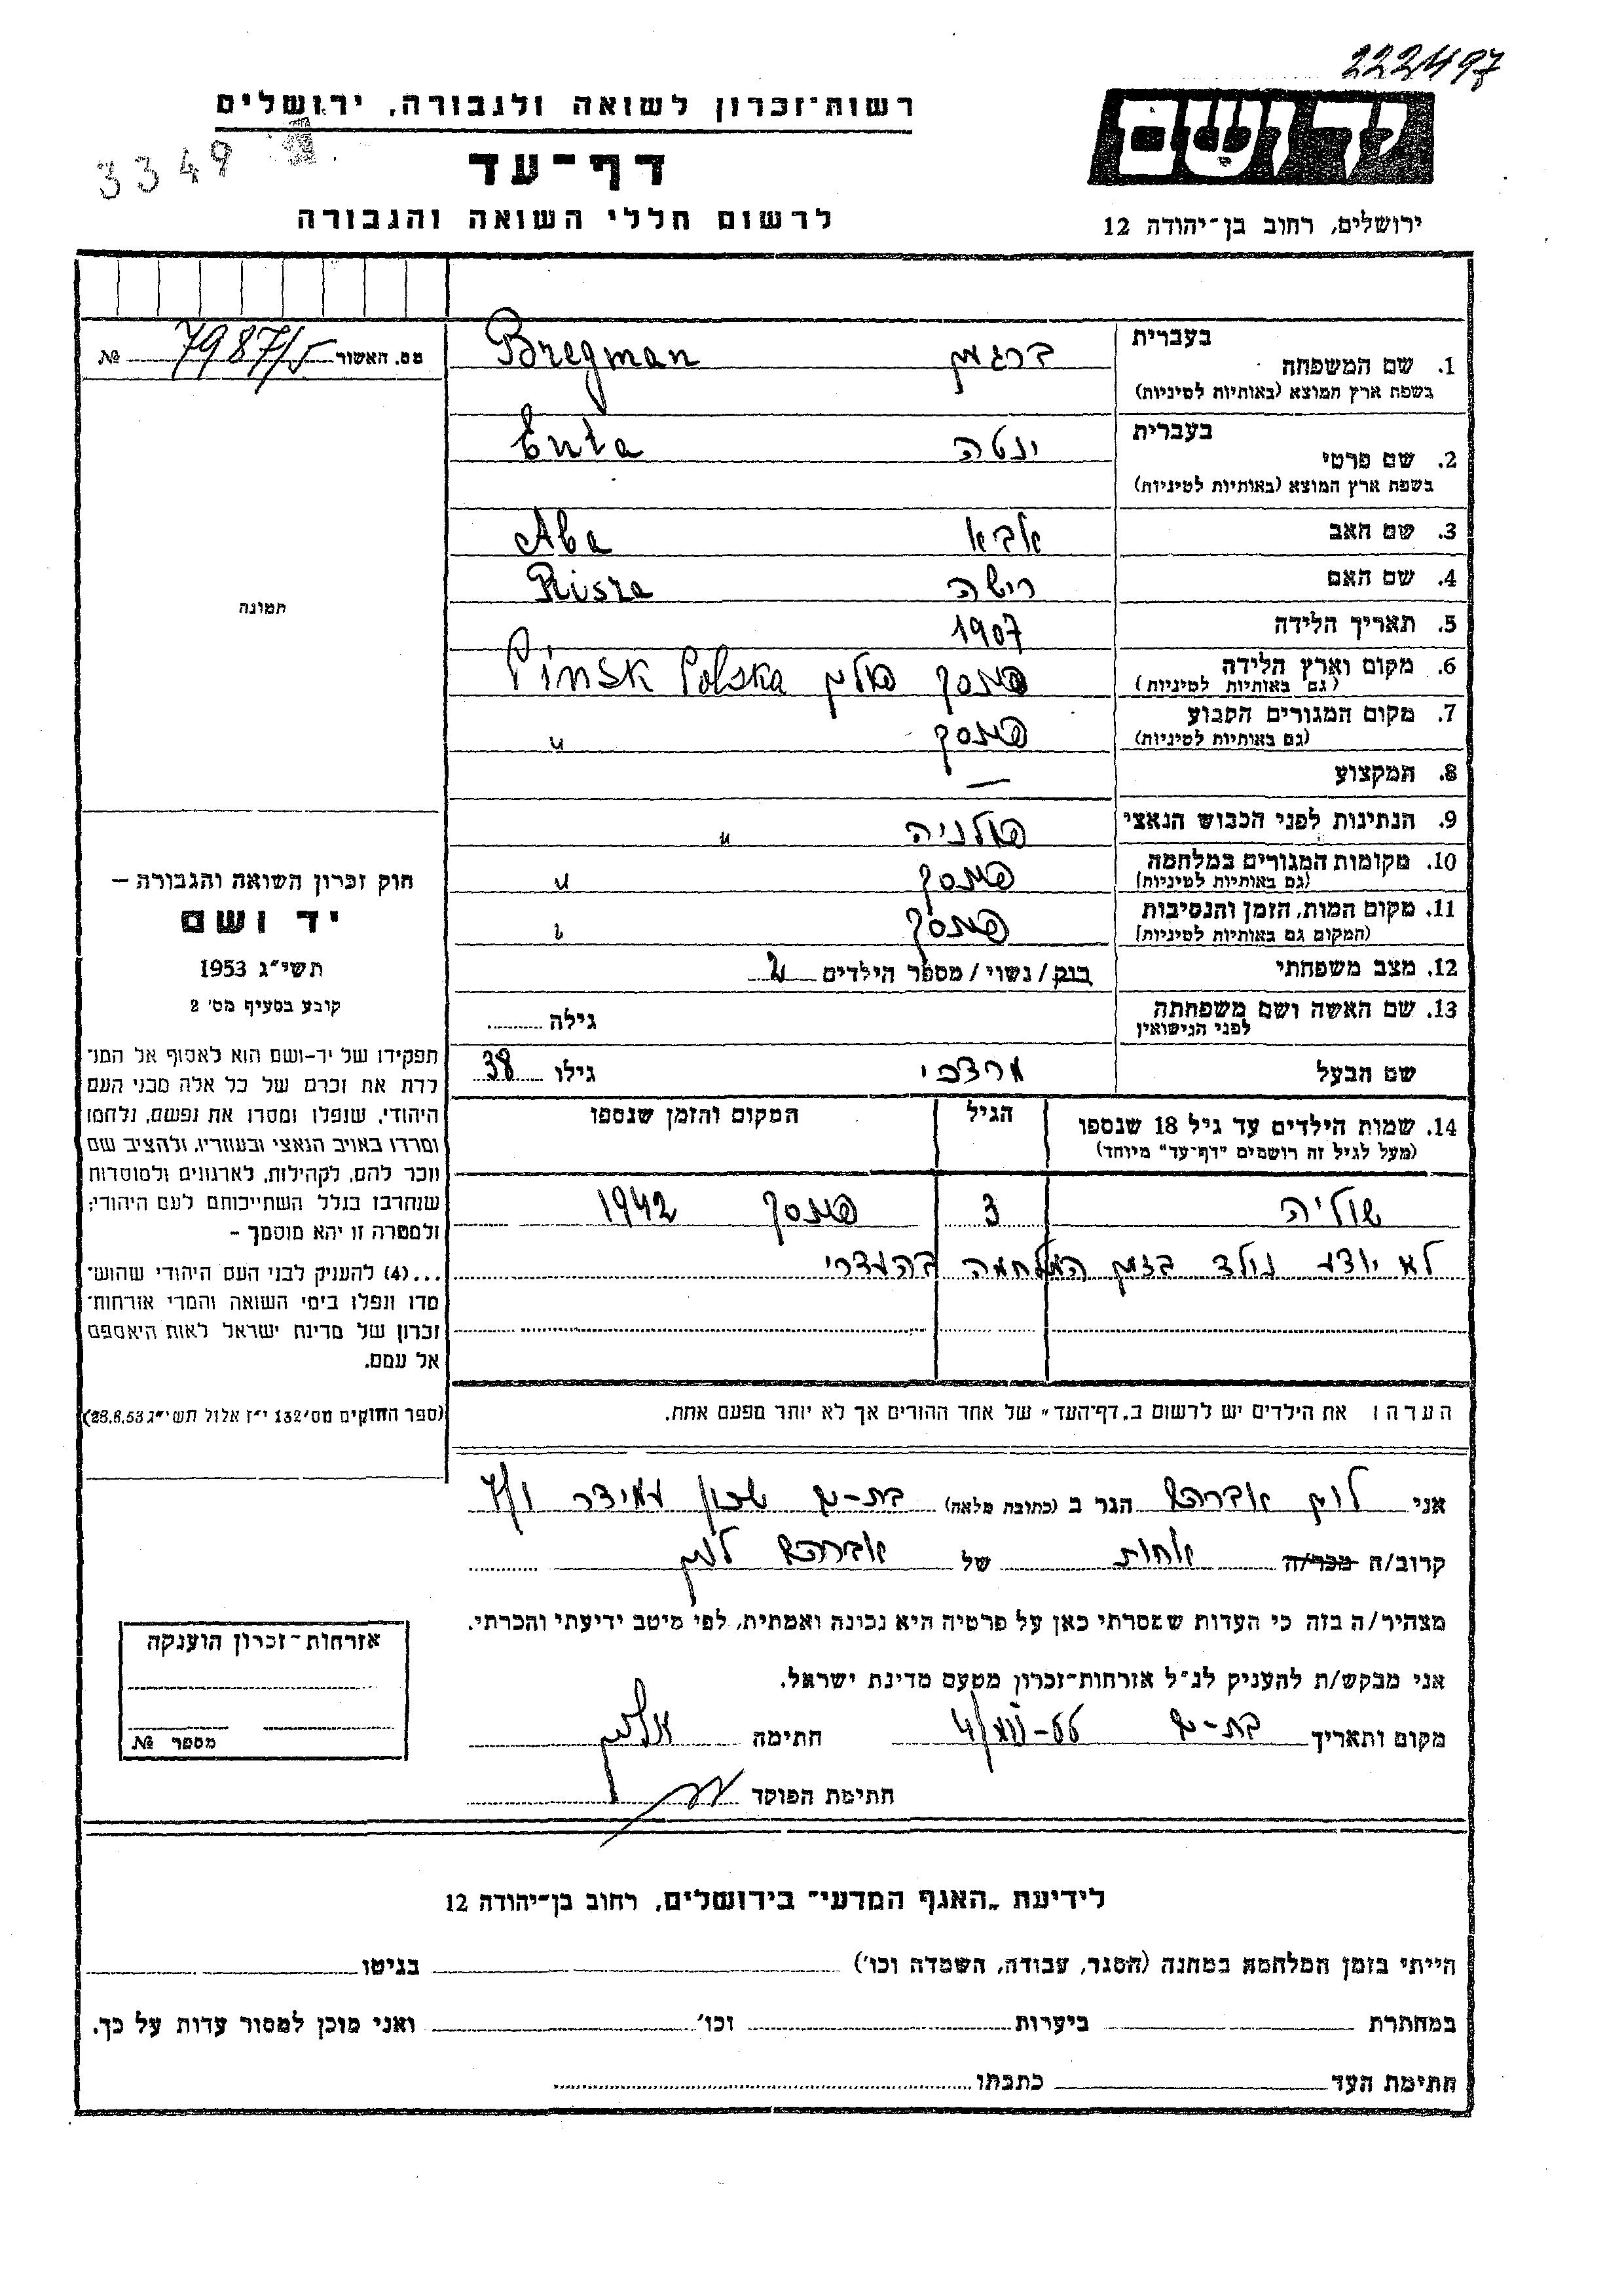 222497
רשות־זכרון לשואה ולגבורה, ירושלים
3349
דף־עד
ידושם
לרשום חללי השואה והגבורה
ירושלים, רחוב בן־יהודה 12
בעברית
1. שם המשפחה ברגמן Bregman
בשפת ארץ המוצא (באותיות לטיניות)
מס. האשור 7987/5 №
בעברית
2. שם פרטי ינטה Enta
בשפת ארץ המוצא (באותיות לטיניות)
3. שם האב אבא Aba
4. שם האם רישה Risza
תמונה
5. תאריך הלידה 1907
6. מקום וארץ הלידה פינסק פולין Pinsk Polska
(גם באותיות לטיניות)
7. מקום המגורים הקבוע פינסק "
(גם באותיות לטיניות)
8. המקצוע —
9. הנתינות לפני הכבוש הנאצי פולניה "
10. מקומות המגורים במלחמה פינסק "
(גם באותיות לטיניות)
11. מקום המות, הזמן והנסיבות פינסק "
(המקום גם באותיות לטיניות)
12. מצב משפחתי רוק / נשוי / מספר הילדים 2
13. שם האשה ושם משפחתה גילה
לפני הנישואין
שם הבעל מרדכי גילו 38
14. שמות הילדים עד גיל 18 שנספו הגיל המקום והזמן שנספו
(מעל לגיל זה רושמים "דף־עד" מיוחד)
שוליה 3 פינסק 1942
לא יודע נולד בזמן המלחמה בהעדרי
חוק זכרון השואה והגבורה —
יד ושם
תשי״ג 1953
קובע בסעיף מס׳ 2
תפקידו של יד־ושם הוא לאסוף אל המו־
לדת את זכרם של כל אלה מבני העם
היהודי, שנפלו ומסרו את נפשם, נלחמו
ומרדו באויב הנאצי ובעוזריו, ולהציב שם
וזכר להם, לקהילות, לארגונים ולמוסדות
שנחרבו בגלל השתייכותם לעם היהודי;
ולמטרה זו יהא מוסמך –
...(4) להעניק לבני העם היהודי שהוש־
מדו ונפלו בימי השואה והמרי אזרחות־
זכרון של מדינת ישראל לאות היאספם
אל עמם.
(ספר החוקים מס׳ 132 י״ז אלול תשי״ג 28.8.53)
הערה: את הילדים יש לרשום ב„דף־העד״ של אחד ההורים אך לא יותר מפעם אחת.
אני לוין אברהם הגר ב (כתובת מלאה) בת־ים שכון עמידר
קרוב/ה מכר/ה אחות של אברהם לוין
מצהיר/ה בזה כי העדות שמסרתי כאן על פרטיה היא נכונה ואמתית, לפי מיטב ידיעתי והכרתי.
אני מבקש/ת להעניק לנ״ל אזרחות־זכרון מטעם מדינת ישראל.
מקום ותאריך בת־ים חתימה
חתימת הפוקד
אזרחות־זכרון הוענקה
מספר №
לידיעת „האגף המדעי״ בירושלים, רחוב בן־יהודה 12
הייתי בזמן המלחמה במחנה (הסגר, עבודה, השמדה וכו׳) בגיטו
במחתרת ביערות וכו׳ ואני מוכן למסור עדות על כך.
חתימת העד כתבתו